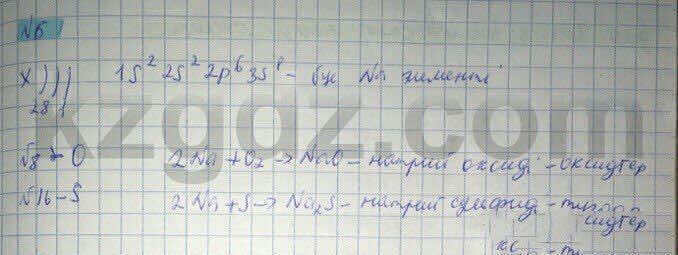 №6
X ))) 1s² 2s² 2p⁶ 3s¹ – бұл Na элементі
2 8 1
№8 – O 2Na + O₂ → NaO – натрий оксиді – оксидтер
№16 – S 2Na + S → Na₂S – натрий сульфиді –
сидтер
kzgdz.com